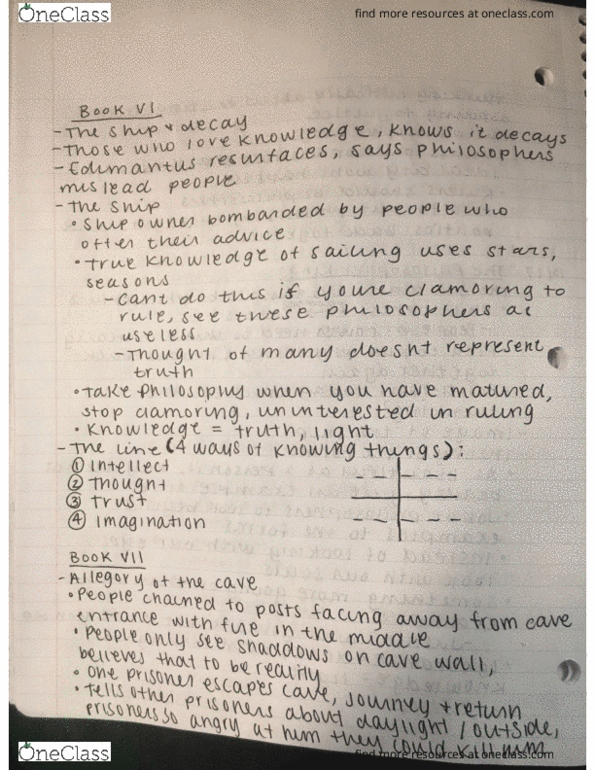 OneClass
find more resources at oneclass.com
Book VI
- The ship & decay
- Those who love knowledge, knows it decays
- Edimantus resurfaces, says philosophers
mislead people
- The ship
• Ship owner bombarded by people who
offer their advice
• True knowledge of sailing uses stars,
seasons
- Cant do this if youre clamoring to
rule, see these philosophers as
useless
- Thought of many doesnt represent
truth
• Take philosophy when you have matured,
stop clamoring, uninterested in ruling
• Knowledge = truth, light
- The line (4 ways of knowing things):
① Intellect
② Thought
③ Trust
④ Imagination
Book VII
- Allegory of the cave
• People chained to posts facing away from cave
entrance with fire in the middle
• People only see shaddows on cave wall,
believes that to be reality
• One prisoner escapes cave, journey & return
• Tells other prisoners about daylight / outside,
prisoners so angry at him they could kill him
OneClass
find more resources at oneclass.com